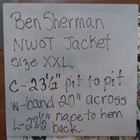 Ben Sherman
NWOT Jacket
Size XXL
C-23½" pit to pit
W-band 20" across
L-28½" nape to hem
back